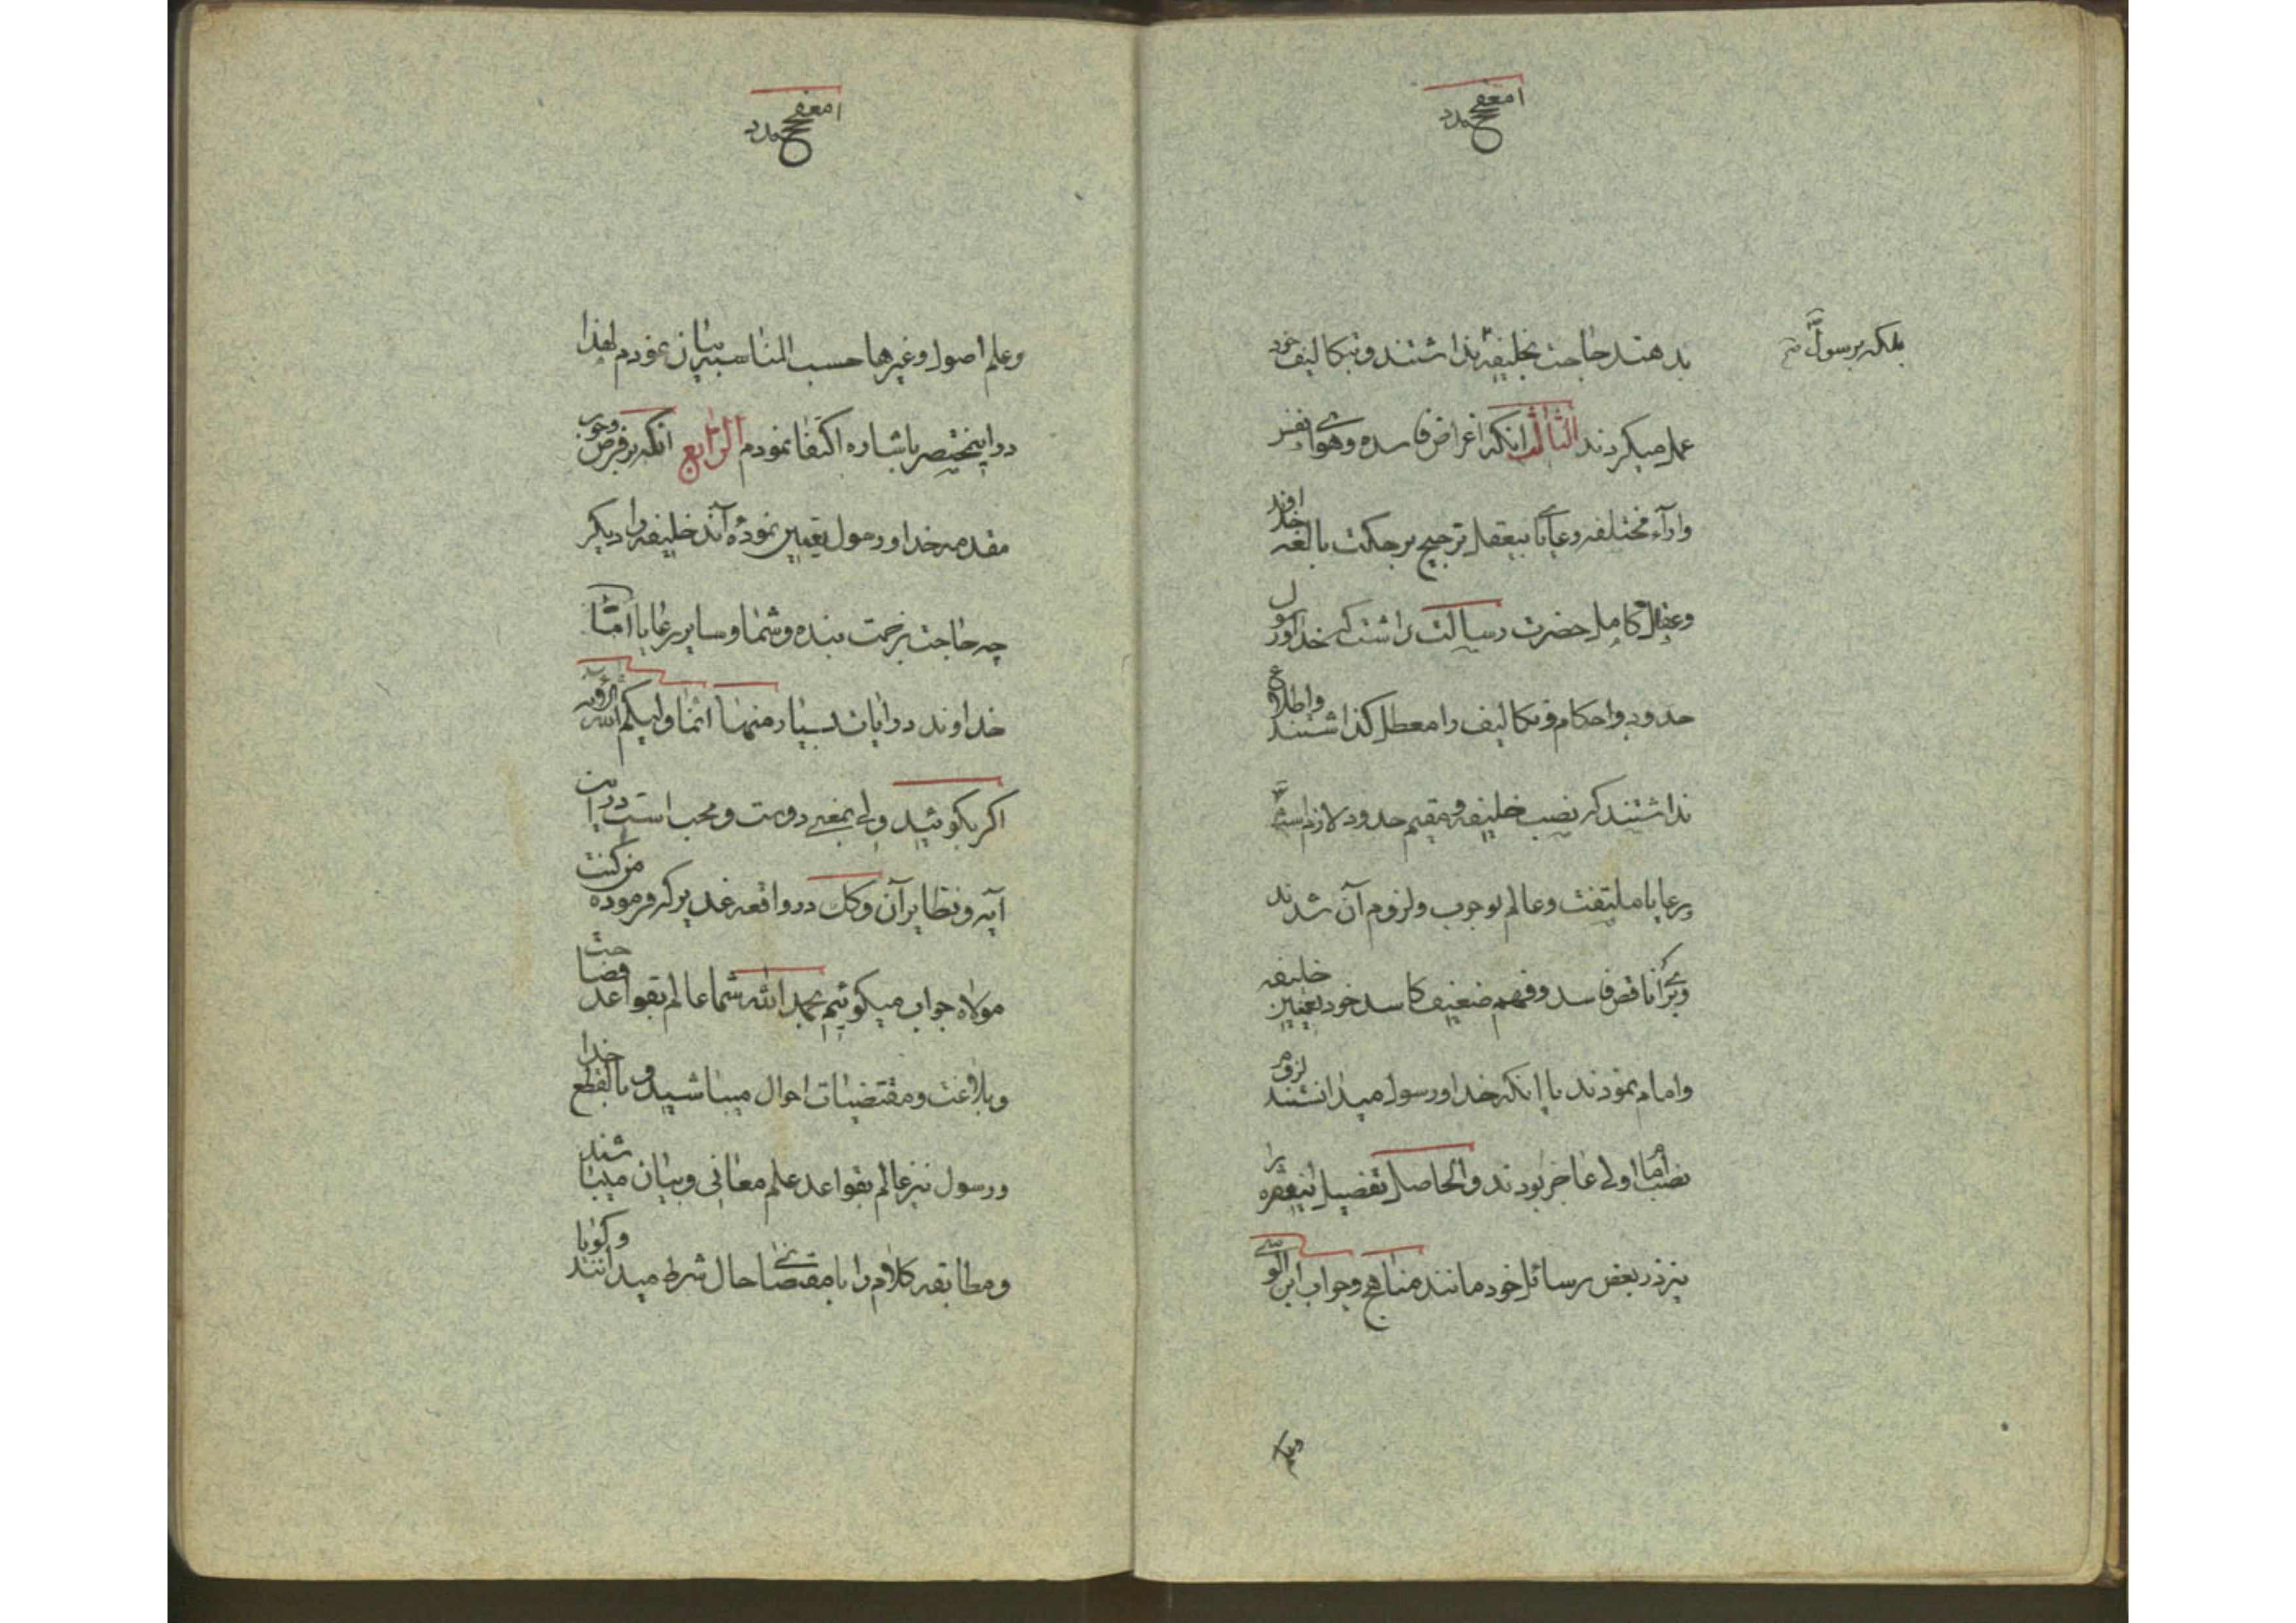 بدهند حاجت بخلیفه نداشتند و بتکالیف خود
بلکه برسول
عمل میکردند الثالث انکه اغراض فاسده وهوای نفس
وارآء مختلفه رعایا بیعقل ترجیح بر حکمت بالغه خداوند
وعقل کامل حضرت رسالت داشت که خدا ورسول
حدود واحکام وتکالیف را معطل کذاشتند واطلاع
نداشتند که نصب خلیفه ومقیم حدود لازم است
رعایا ملتفت وعالم بوجوب ولزوم آن شدند
ناقص فاسد وفهم ضعیف کاسد خود تعیین خلیفه
وامام نمودند با انکه خدا ورسول میدانستند لزوم
نصب اما اولی عاجز بودند والحاصل تفصیل اینفقره را
نیز در بعض رسائل خود مانند مناهج وجواب ابن الوسی
وعلم
وعلم اصول وغیرها حسب المناسبه بیان نمودم لهذا
در اینمختصر باشاره اکتفا نمودم الرابع انکه بر فرض وجوب
مقدمه خدا ورسول تعیین نموده آند خلیفه را دیکر
چه حاجت بزحمت بنده وشما وسایر رعایا امّا
خداوند در ایات بسیار منها انما ولیکم الله
اکر بکوئید ولی بمعنی دوست ومحب است در این
آیه ونظایر آن وکک در واقعه غدیر که فرموده من کنت
مولاه جواب میکوئیم بحمد الله شما عالم بقواعد فصاحت
وبلاغت ومقتضیات احوال میباشید و بالقطع خدا
ورسول نیز عالم بقواعد علم معانی وبیان میباشند
ومطابقه کلام را با مقتضای حال شرط میدانند وکویا